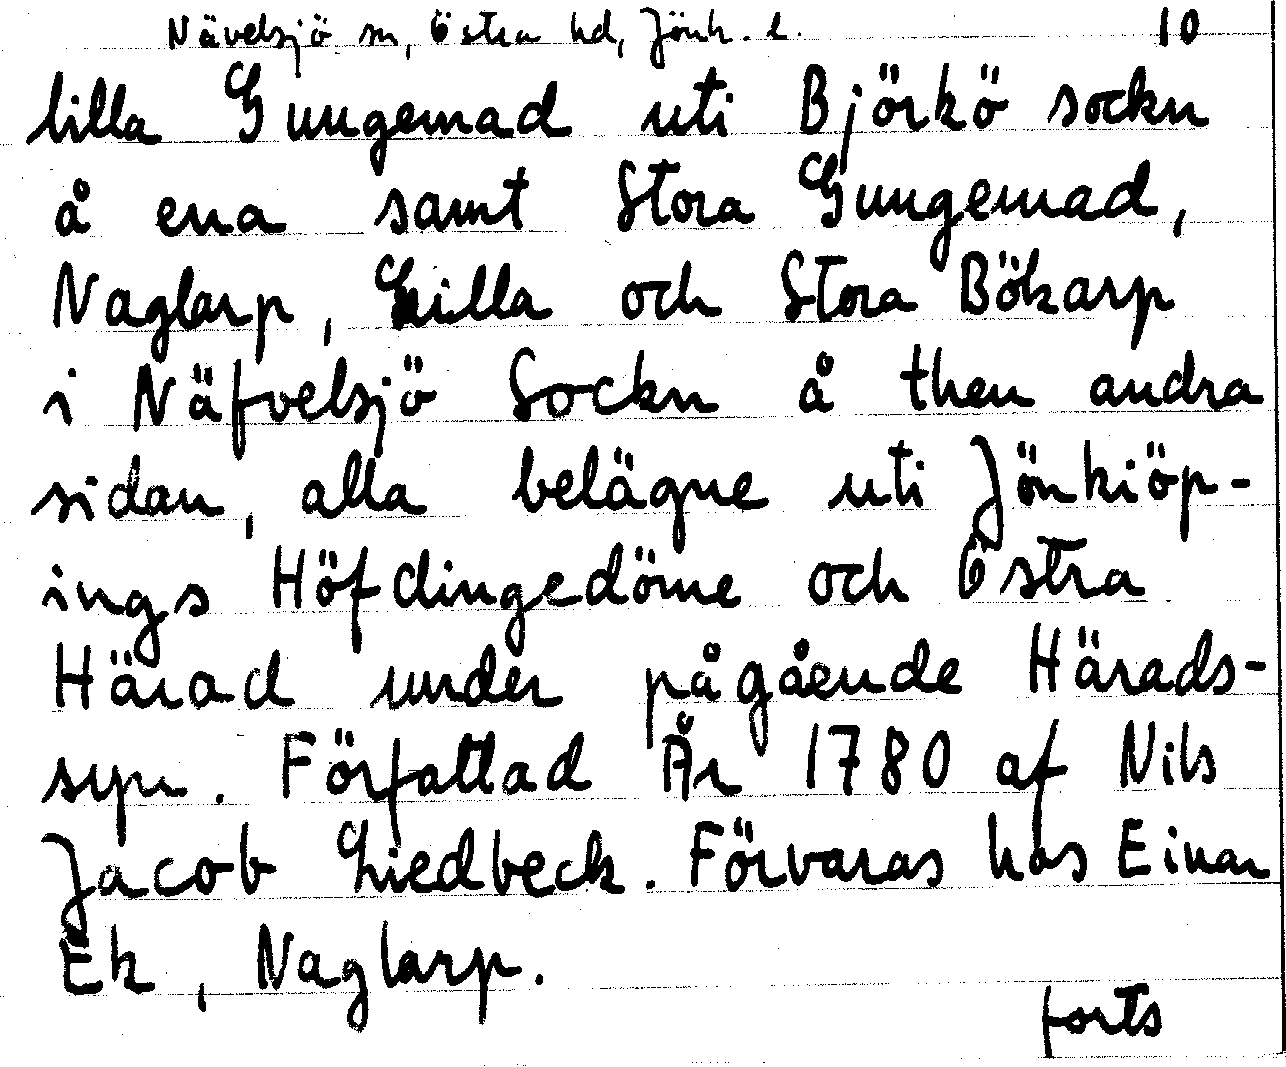 Nävelsjö sn, Östra hd, Jönk. l. 10
lilla Gungemad uti Björkö sockn
å ena samt Stora Gungemad,
Naglarp, Lilla och Stora Bökarp
i Näfvelsjö Sockn å then andra
sidan, alla belägne uti Jönkiöp-
ings Höfdingedöme och Östra
Härad under pågående Härads-
syn. Författad År 1780 af Nils
Jacob Liedbeck. Förvaras hos Einar
Ek, Naglarp.
forts